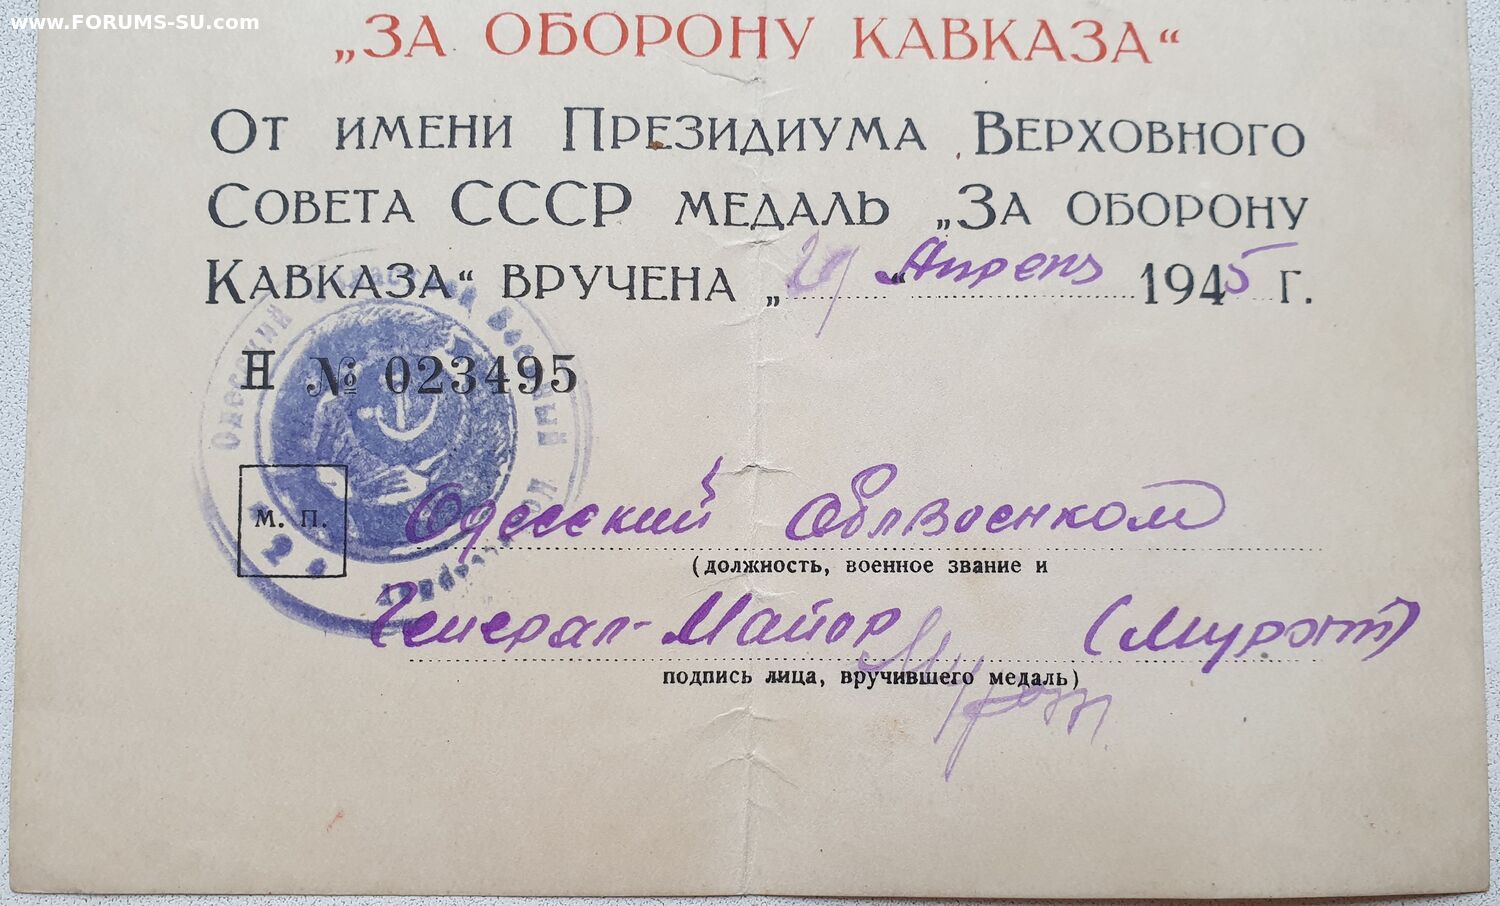 www.FORUMS-SU.com
„ЗА ОБОРОНУ КАВКАЗА“
ОТ ИМЕНИ ПРЕЗИДИУМА ВЕРХОВНОГО
СОВЕТА СССР МЕДАЛЬ „ЗА ОБОРОНУ
КАВКАЗА“ ВРУЧЕНА „29“ Апреля 1945 г.
Н № 023495
Одесский Военный
М. П.
Одесский Облвоенком
(должность, военное звание и
Генерал-Майор (Мурат)
подпись лица, вручившего медаль)